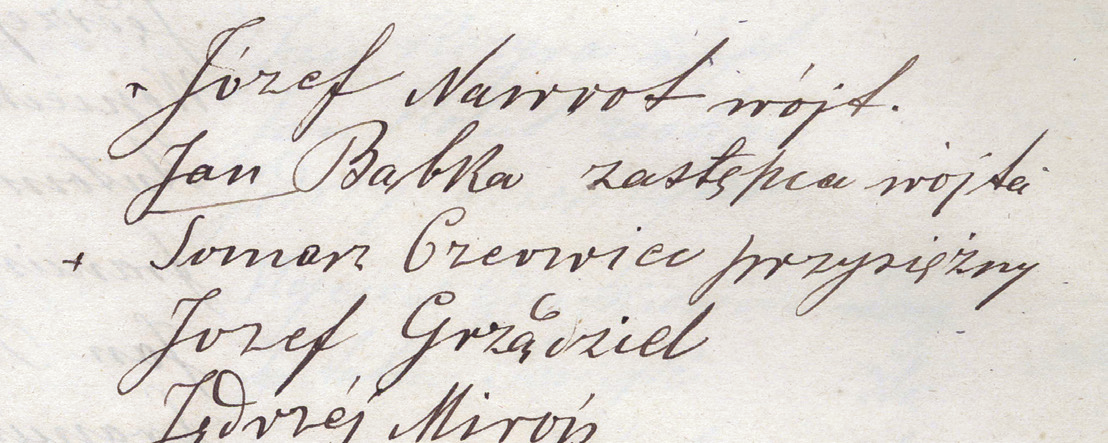 Józef Nawrot wójt.
Jan Bąbka zastępca wójta
+ Tomasz przysiężny
Jozef Grządziel
Jędrzéj Miroń